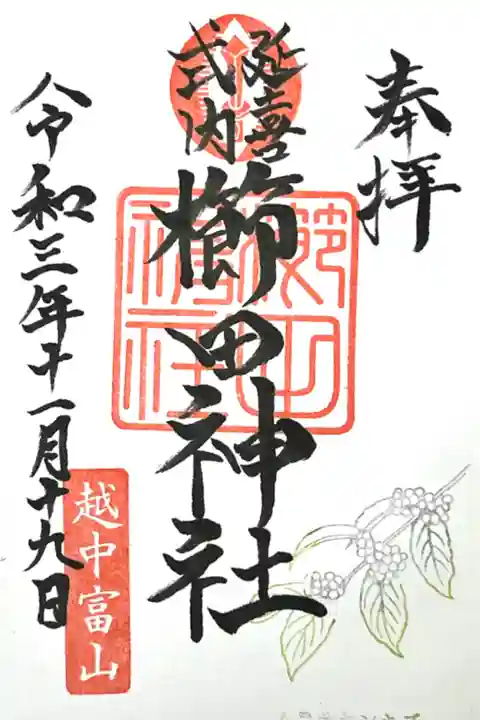 奉拝
延喜
式内
櫛田神社
令和三年十一月十九日
越中富山
櫛田
神社